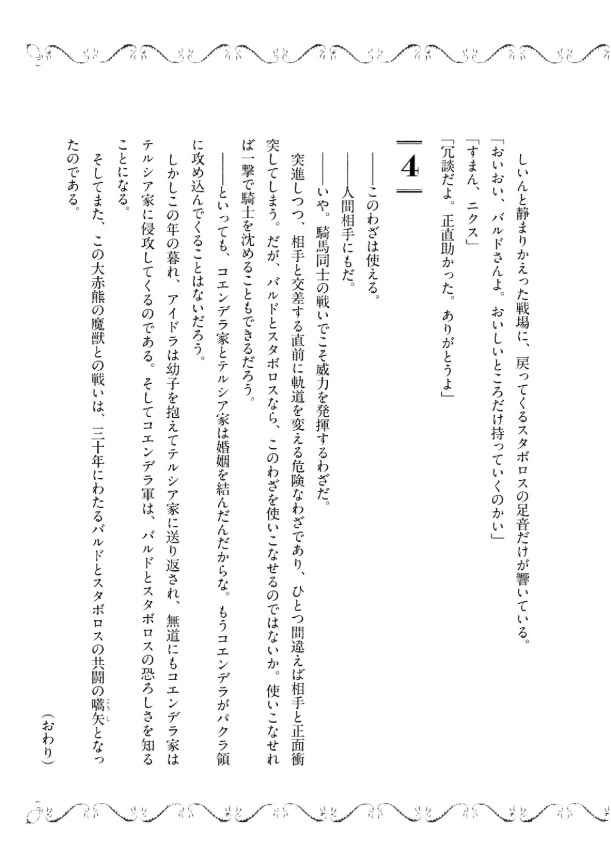 しいんと静まりかえった戦場に、戻ってくるスタボロスの足音だけが響いている。
「おいおい、バルドさんよ。おいしいところだけ持っていくのかい」
「すまん、ニクス」
「冗談だよ。正直助かった。ありがとうよ」
4
――このわざは使える。
――人間相手にもだ。
――いや。騎馬同士の戦いでこそ威力を発揮するわざだ。
突進しつつ、相手と交差する直前に軌道を変える危険なわざであり、ひとつ間違えば相手と正面衝
突してしまう。だが、バルドとスタボロスなら、このわざを使いこなせるのではないか。使いこなせれ
ば一撃で騎士を沈めることもできるだろう。
――といっても、コエンデラ家とテルシア家は婚姻を結んだんだからな。もうコエンデラがパクラ領
に攻め込んでくることはないだろう。
しかしこの年の暮れ、アイドラは幼子を抱えてテルシア家に送り返され、無道にもコエンデラ家は
テルシア家に侵攻してくるのである。そしてコエンデラ軍は、バルドとスタボロスの恐ろしさを知る
ことになる。
そしてまた、この大赤熊の魔獣との戦いは、三十年にわたるバルドとスタボロスの共闘の嚆矢となっ
たのである。
こうし
（おわり）